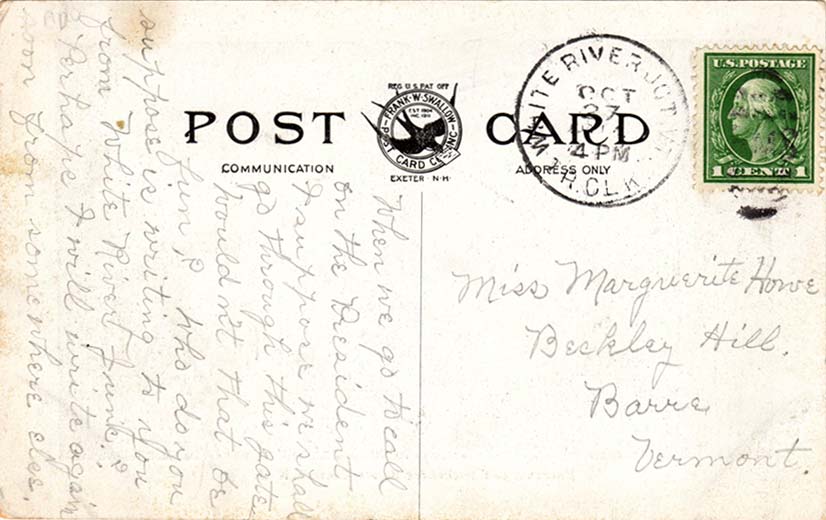 POST CARD
REG U.S. PAT OFF
FRANK·W·SWALLOW
EST 1904
INC. 1911
POST CARD CO. INC
EXETER - N·H·
COMMUNICATION
ADDRESS ONLY
WHITE RIVER JCT. VT.
OCT
27
4 PM
R.CLK.
U.S. POSTAGE
1 CENT 1
When we go to call
on the President
I suppose we shall
go through this gate
wouldn't that be
fun? Who do you
suppose is writing to you
from White River Junk.?
Perhaps I will write again
soon from somewhere else.
Miss Marguerite Howe
Beckley Hill.
Barre
Vermont.